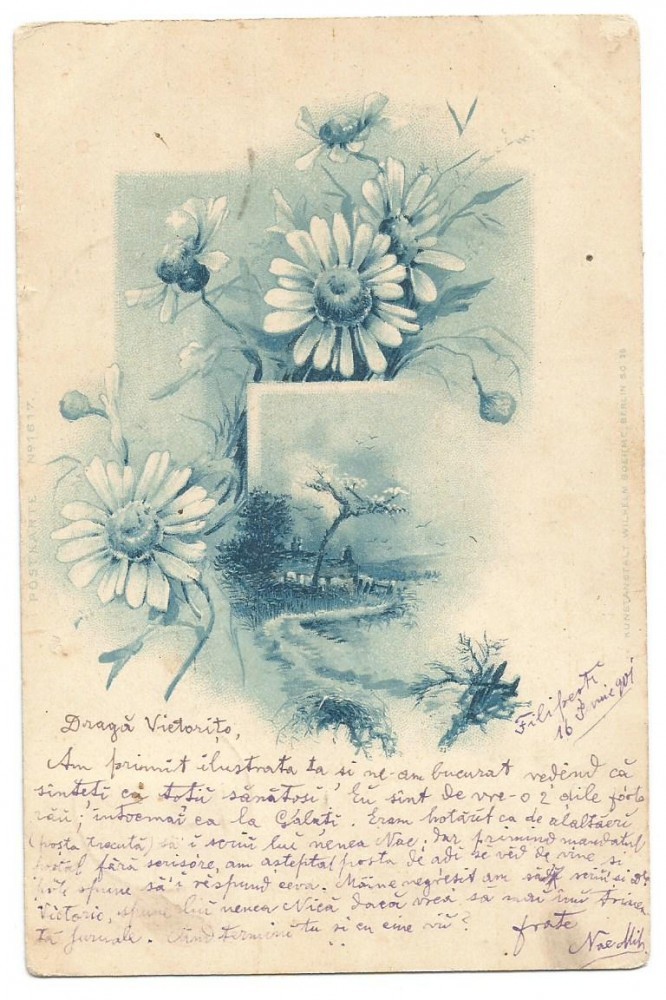 POSTKARTE Nº 1617.
KUNSTANSTALT WILHELM BOEHME, BERLIN S.O. 26
Filipești
16 901
Dragă Victorito,
Am primit ilustrata ta si ne-am bucurat vedênd că
sînteți cu toții sănătosi, Eu sînt de vre-o 2 dile fórte
rău; întocmai ca la Galați. Eram hotărît ca de alaltăeri
(posta trecută) să i scriu lui nenea Nae, dar primind mandatul
postal fără scrisóre, am asteptat posta de adi se vĕd de vine, si
spune să i rĕspund ceva. Mâine negresit am să scriu si
Victorie, spune lui nenea Nică dacă vrea să mai îmi
tă jurnale. Când termini tu si cu cine viĭ?
frate
Nae Mih.